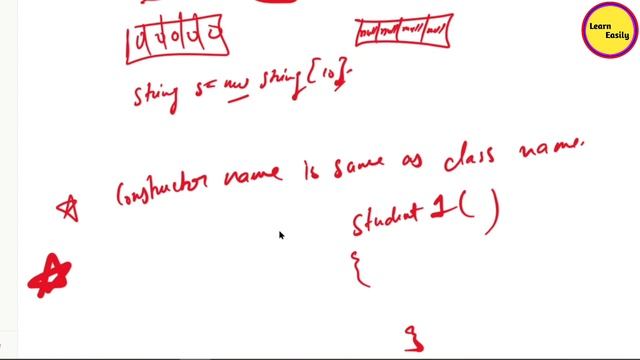 Learn
Easily
0 0 0 0 0
null null null null
String s= new string[10];
Constructor name is same as class name.
Student1()
{
}